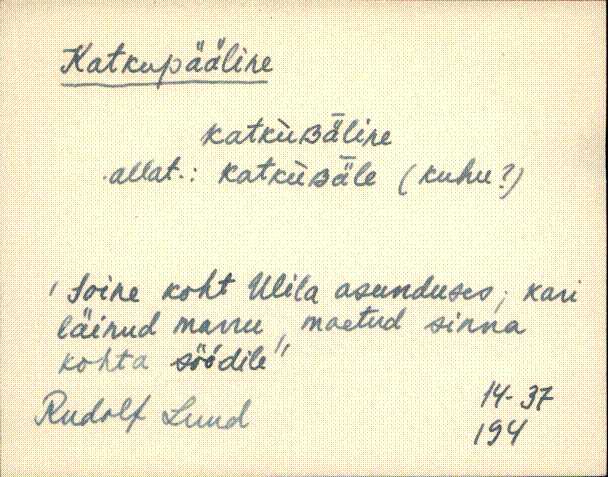 Katkupääline
katkùʙǟline
allat.: katkùʙǟle (kuhu?)
"Soine koht Ulila asunduses; kari
läinud marru, maetud sinna
kohta söödile"
Rudolf Lund
14-37
194